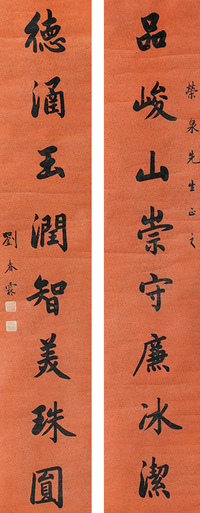 榮泉先生正之
品峻山崇守廉冰潔
德涵玉潤智美珠圓
劉春霖